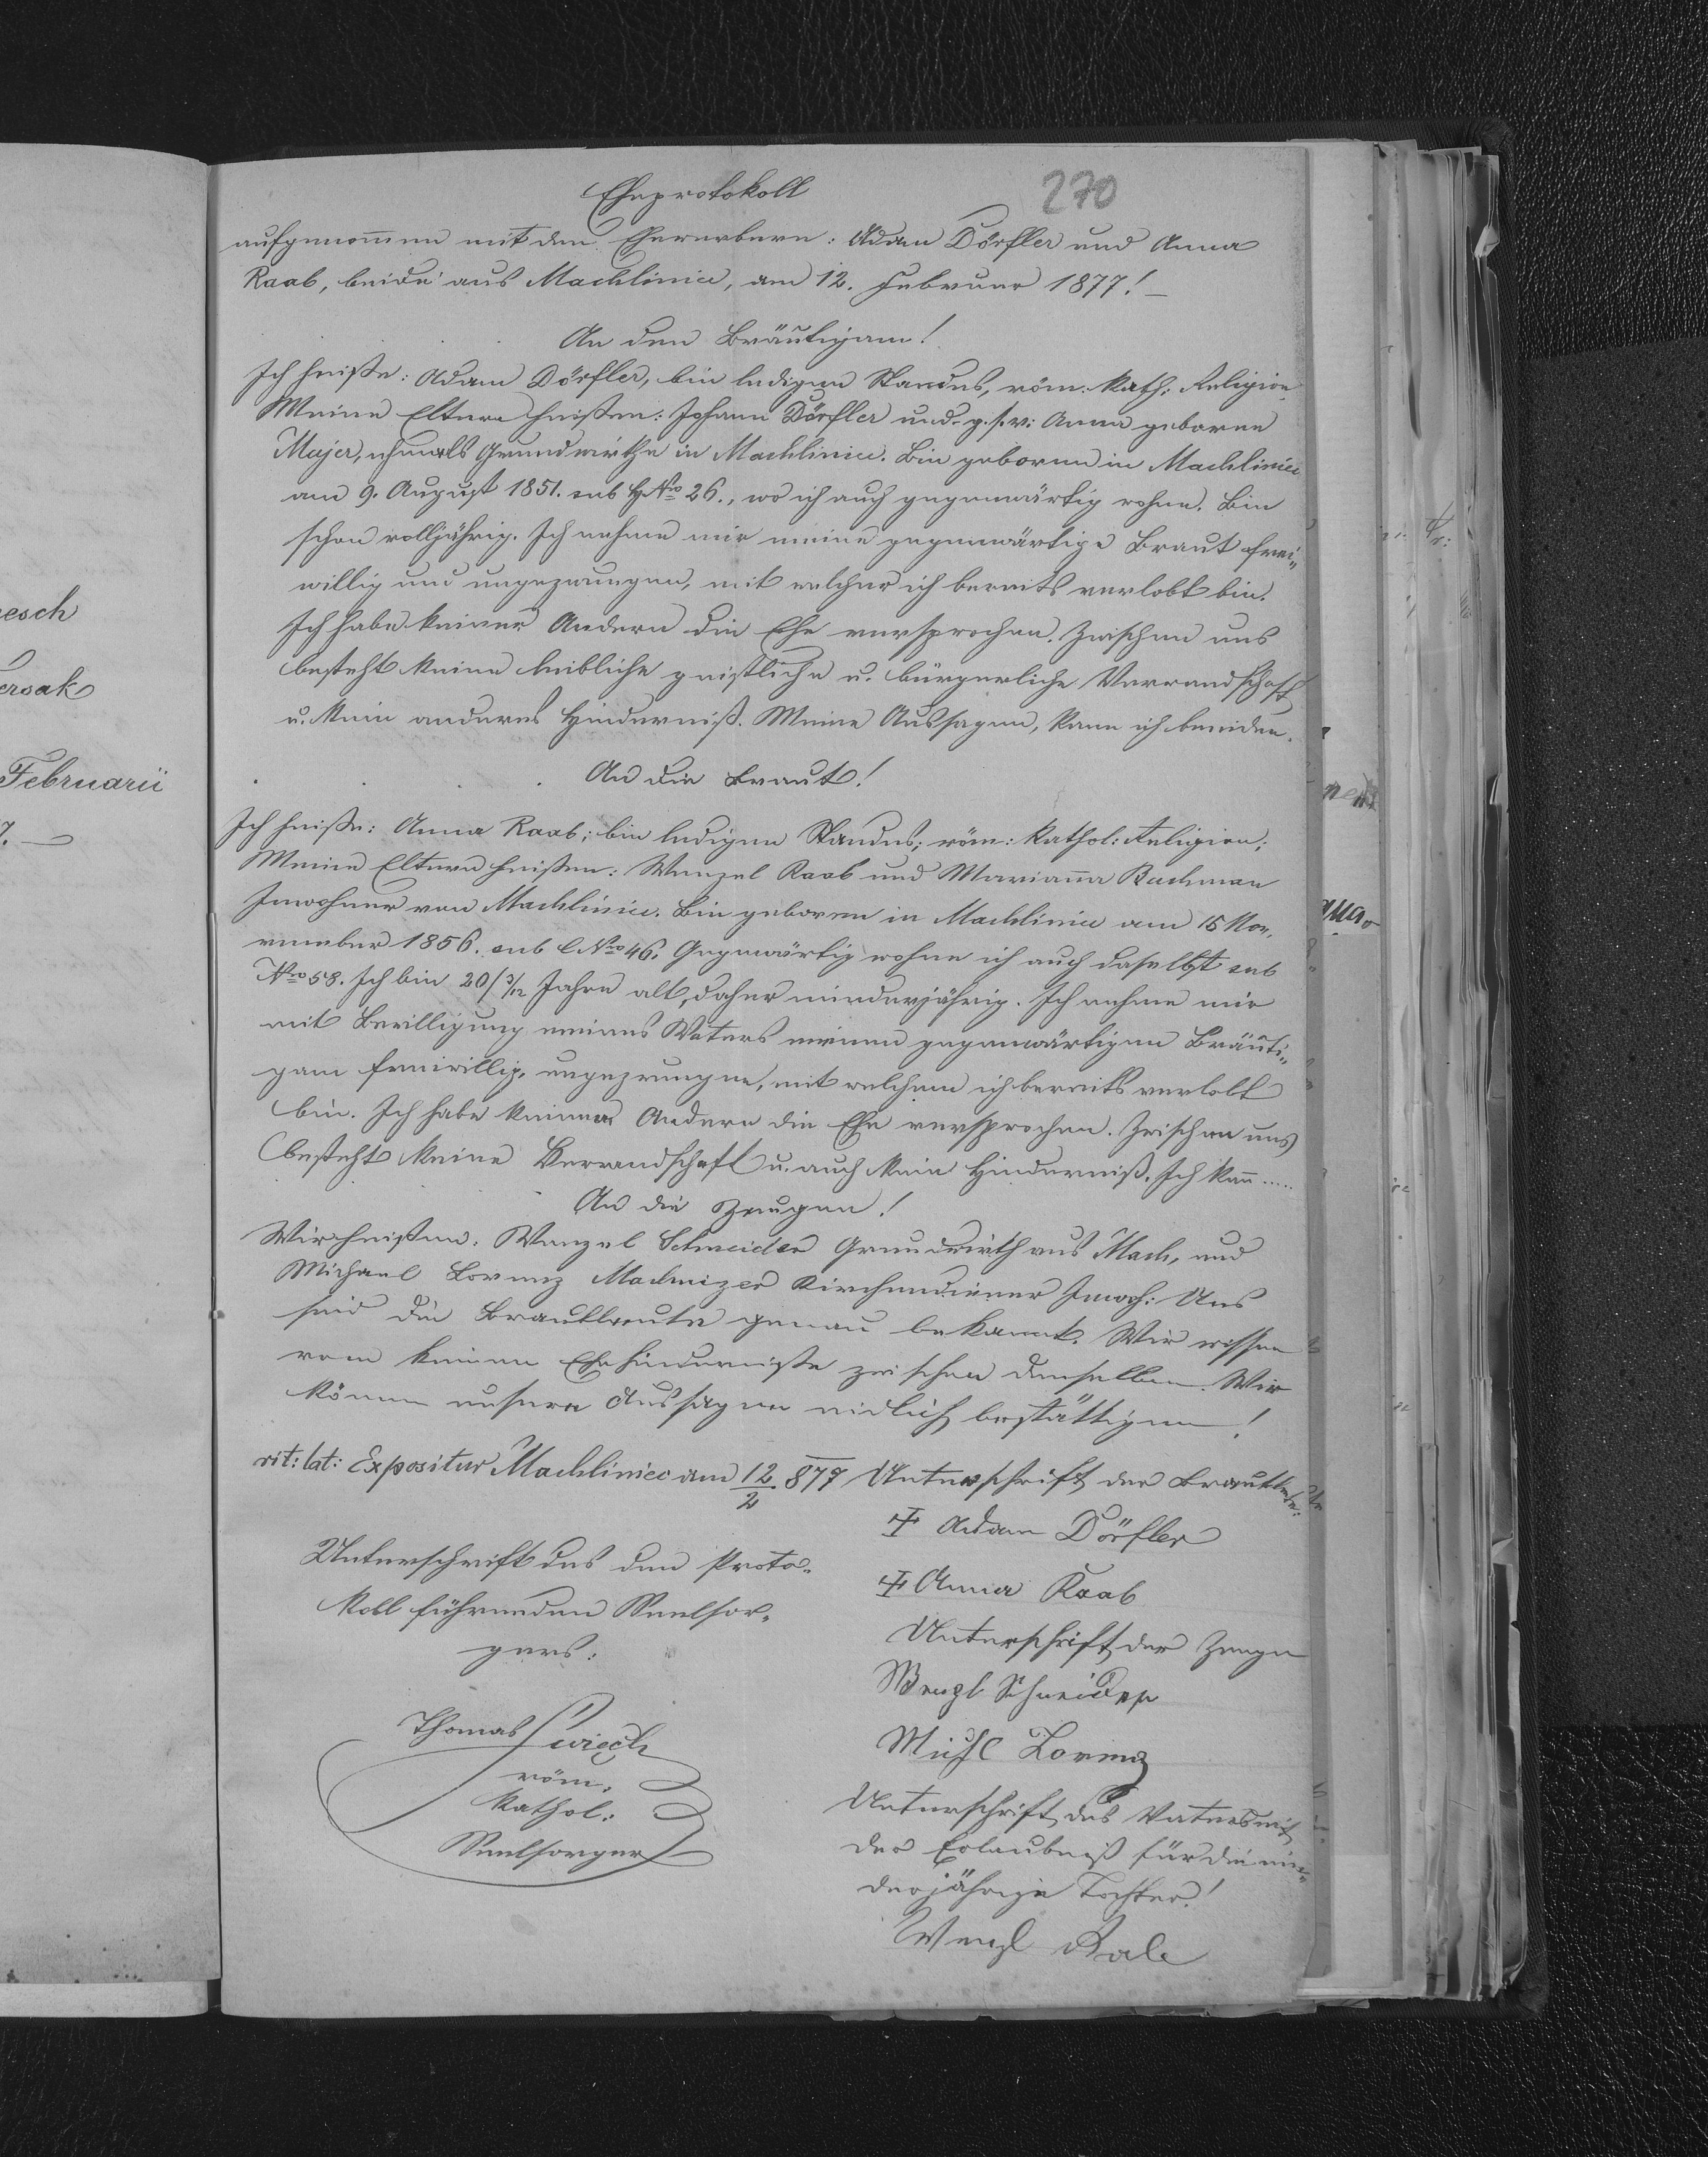 Eheprotokoll
270
aufgenommen mit den Ehewerbern: Adam Dörfler und Anna
Raab, beide aus Machlinice, am 12. Februar 1877! —
An den Bräutigam!
Ich heiße: Adam Dörfler, bin ledigen Standes, röm: kath: Religion
Meine Eltern heißen: Johann Dörfler und g.s.v: Anna geborene
Majer, ehmals Grundwirthe in Machlinice. Bin geboren in Machlinice
am 9. August 1851. sub HNro 26., wo ich auch gegenwärtig wohne. Bin
schon volljährig. Ich nehme mir meine gegenwärtige Braut frei„
willig und ungezwungen, mit welcher ich bereits verlobt bin.
Ich habe keiner Andern die Ehe versprochen. Zwischen uns
besteht keine leibliche geistliche u. bürgerliche Verwandschaft
u. kein anderes Hinderniß. Meine Aussagen, kann ich beeiden.
An die Braut!
Ich heiße: Anna Raab; bin ledigen Standes; röm: kathol: Religion;
Meine Eltern heißen: Wenzel Raab und Marianna Bachman
Inwohner von Machlinice. Bin geboren in Machlinice am 15 Nov„
vember 1856. sub CNro 46. Gegenwärtig wohne ich auch daselbst sub
Nro 58. Ich bin 20/ 3/12 Jahre alt, daher minderjährig. Ich nehme mir
mit Bewilligung meines Vaters meinen gegenwärtigen Bräuti„
gam freiwillig, ungezwungen, mit welchem ich bereits verlobt
bin. Ich habe keinen Andern die Ehe versprochen. Zwischen uns
besteht keine Verwandschaft u. auch kein Hinderniß. Ich kann .....
An die Zeugen!
Wir heißen: Wenzel Schneider Grundwirth aus Mach, und
Michael Lorenz Machnizer Kirchendiener Inwoh: Uns
sind die Brautleute genau bekannt. Wir wissen
von keinen Ehehinderniße zwischen denselben. Wir
können unsere Aussagen eidlich bestättigen!
rit: lat: Expositur Machliniec am 12/2 877
Unterschrift der Brautleute:
Ŧ Adam Dörfler
Unterschrift des den Proto„
koll führenden Seelsor„
gers:
Ŧ Anna Raab
Unterschrift der Zeugen
Wenzl Schneider
Thomas
röm.
kathol:
Seelsorger
Michl Lorenz
Unterschrift des Vaters mit
der Erlaubniß für die min„
derjährige Tochter!
Wenzl
esch
ersak
Februarii